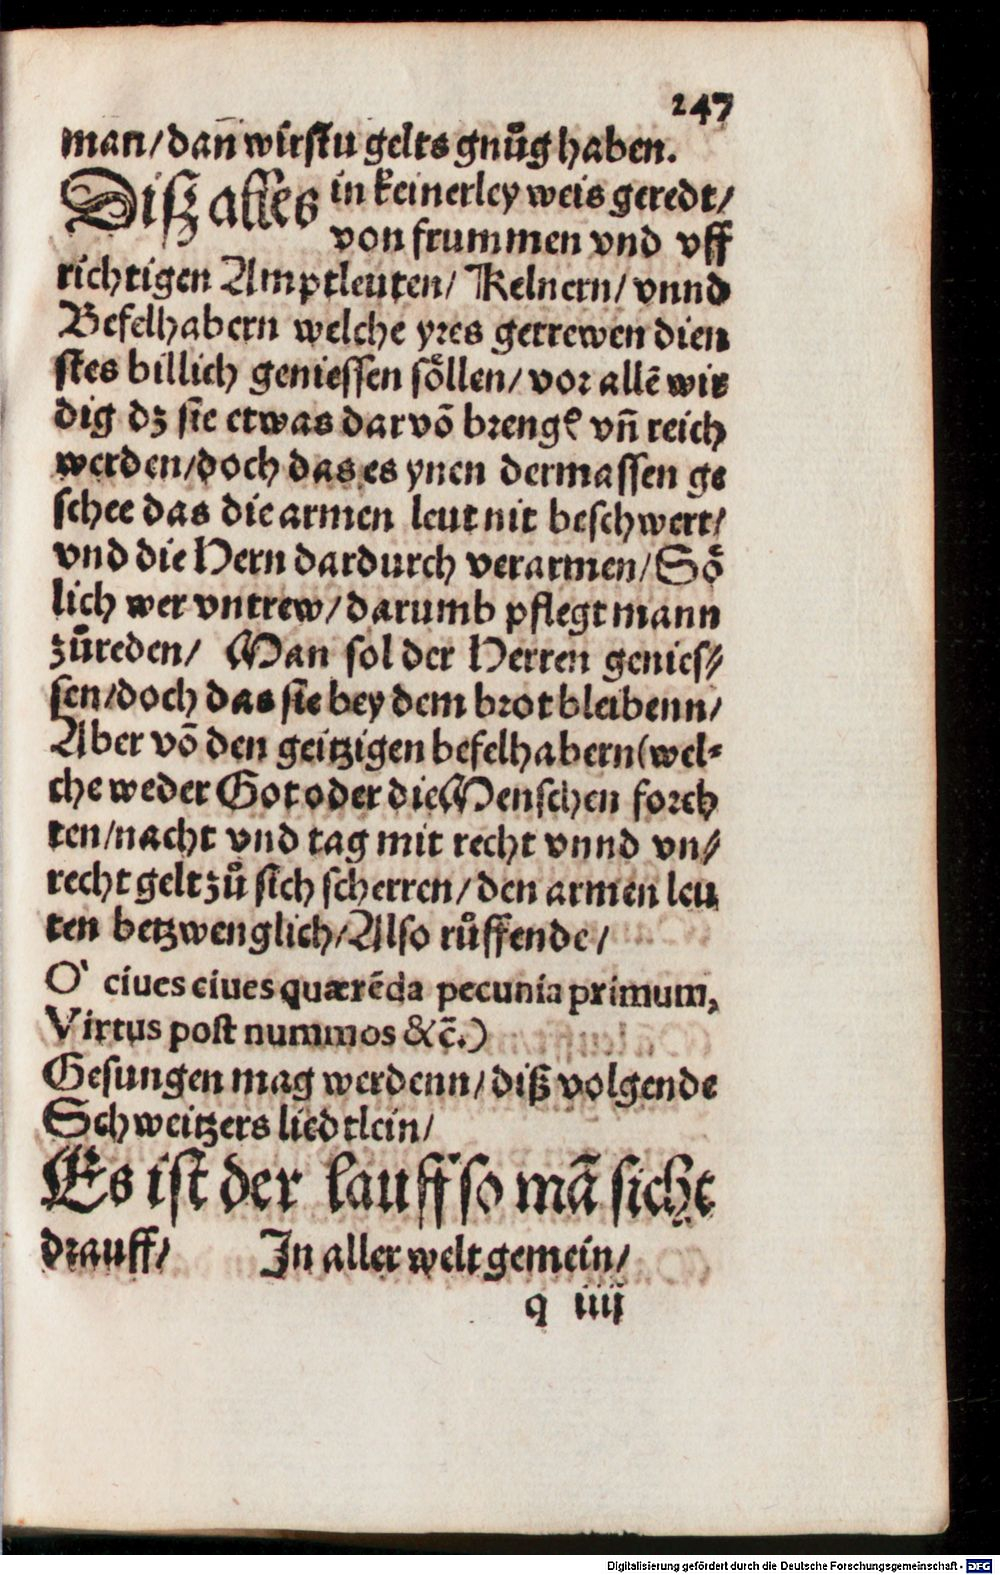 247
man/dañ wirstu gelts gnůg haben.
Disz alles in keinerley weis geredt/
von frummen vnd vff
richtigen Amptleuten/ Kelnern/ vnnd
Befelhabern welche yres getrewen dien
stes billich geniessen sőllen/ vor allē wir
dig dz sie etwas darvō brengē vñ reich
werden/doch das es ynen dermassen ge
schee das die armen leut nit beschwert/
vnd die Hern dardurch verarmen/Ső
lich wer vntrew/darumb pflegt mann
zůreden/ Man sol der Herren genies⸗
sen/doch das sie bey dem brot bleibenn/
Aber vō den geitzigen befelhabern(wel⸗
che weder Got oder die Menschen forch
ten/nacht vnd tag mit recht vnnd vn⸗
recht gelt zů sich scherren/den armen leu
ten betzwenglich/Also růffende/
O ciues ciues quærēda pecunia primum,
Virtus post nummos &c̄.)
Gesungen mag werdenn/diß volgende
Schweitzers liedtlein/
Es ist der lauff so mā sicht
drauff/ In aller welt gemein/
q iiij
Digitalisierung gefördert durch die Deutsche Forschungsgemeinschaft - DFG